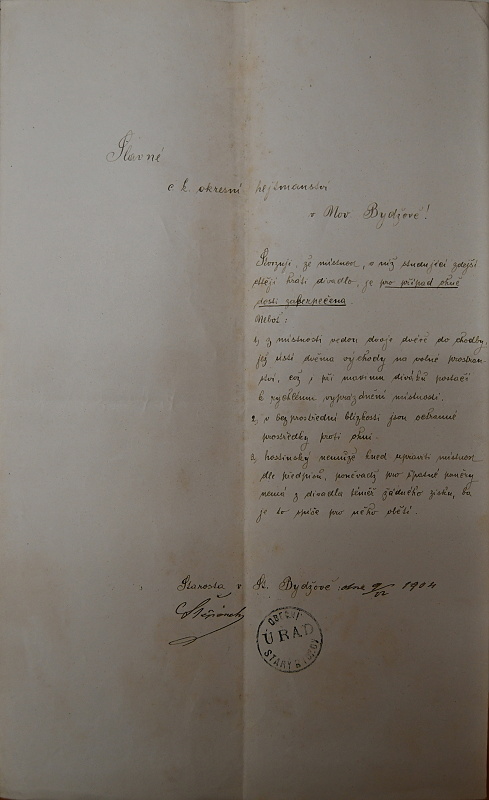 Slavné
c. k. okresní hejtmanství
v Nov. Bydžově!
Stvrzuji, že místnost, v níž studující zdejší
chtějí hráti divadlo, je pro případ ohně
dosti zabezpečena.
Neboť:
1, Z místnosti vedou dvoje dvéře do chodby,
jež ústí dvěma východy na volné prostran-
ství, což i při maximu diváků postačí
k rychlému vyprázdnění místnosti.
2, v bezprostřední blízkosti jsou ochranné
prostředky proti ohni.
3, hostinský nemůže hned upraviti místnost
dle předpisů, poněvadž pro špatné poměry
nemá z divadla téměř žádného zisku, ba
je to spíše pro něho obětí.
Starosta v St. Bydžově dne 9/VI 1904
OBECNÍ
ÚŘAD
STARÝ BYDŽOV